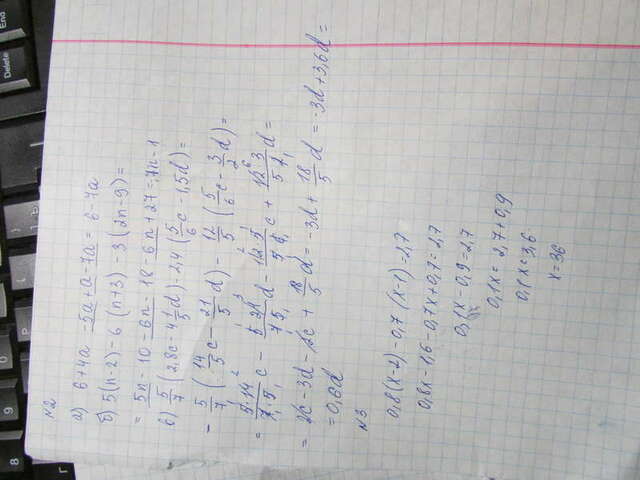 8
9
Delete
End
N2
а) 6+4a -5a+a-7a= 6-7a
б) 5(n-2)-6 (n+3)-3(2n-9)=
= 5n-10-6n-18-6n+27=-7n-1
в) 5/7 (2,8c-4 1/5 d)-2,4 (5/6 c-1,5d)=
= 5/7 (14/5 c- 21/5 d)- 12/5 (5/6 c- 3/2 d)=
= 5·14/7·5 c - 5·21/7·5 d - 12·5/5·6 c + 12·3/5·2 d=
= 2c-3d-2c+ 18/5 d= -3d+ 18/5 d = -3d+3,6d=
=0,6d
N3
0,8(x-2)-0,7 (x-1)=2,7
0,8x-1,6-0,7x+0,7=2,7
0,1x-0,9=2,7
0,1x= 2,7+0,9
0,1x=3,6
x=36